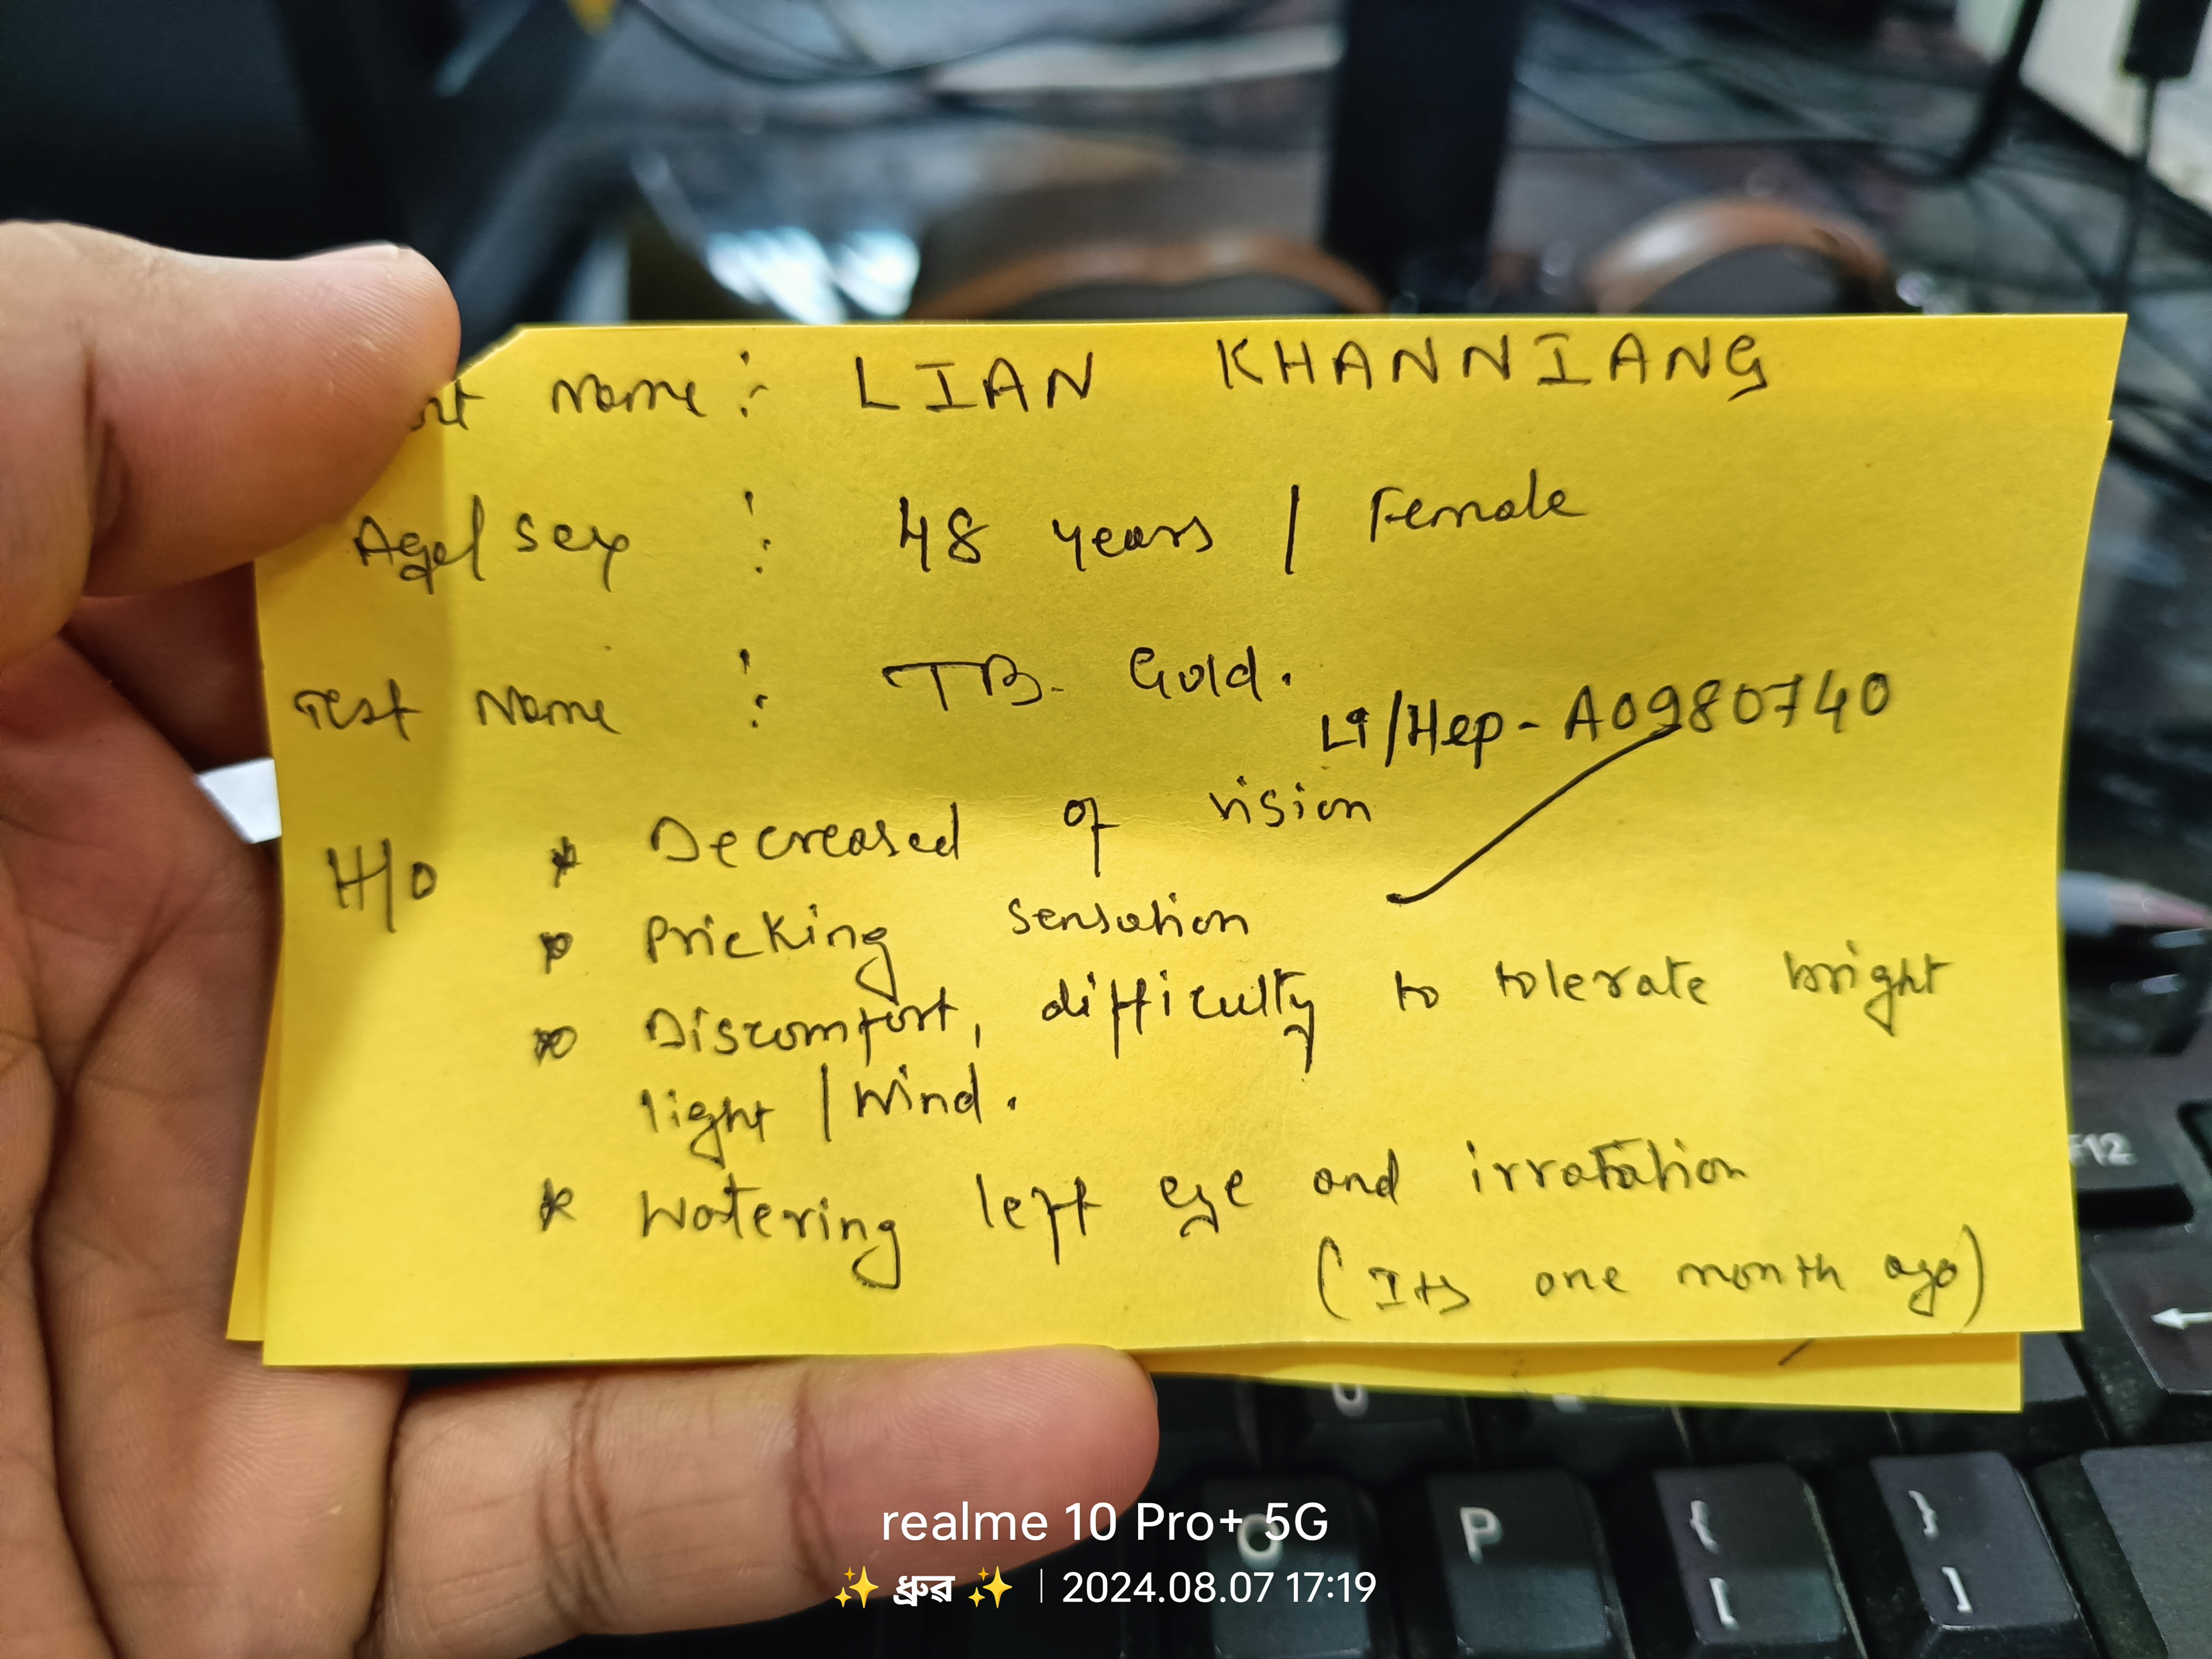 nt Name : LIAN KHANNIANG
Age/Sex : 48 years / Female
Test Name : TB- Gold.
Li/Hep- A0980740
H/O * Decreased of vision
* Pricking sensation
* Discomfort, difficulty to tolerate bright
light / Wind.
* Watering left eye and irratation
(Its one month ago)
F12
O P { [ } ]
realme 10 Pro+ 5G
✨ ধ্রুৱ ✨ | 2024.08.07 17:19